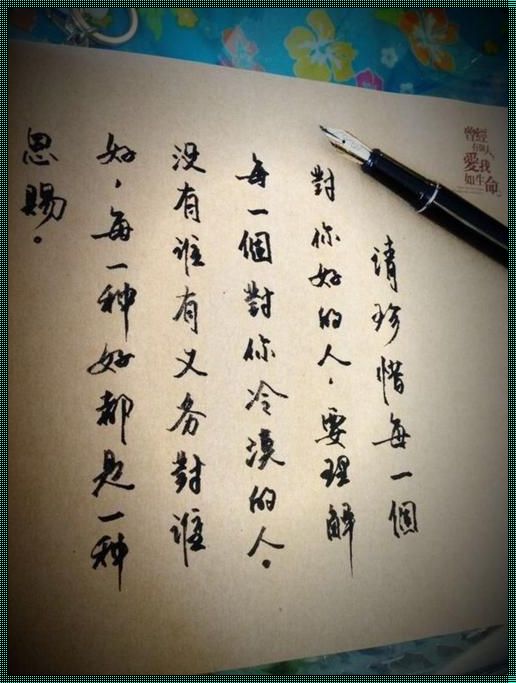 曾經
有個人,
愛我
如生命
请珍惜每一個
對你好的人,要理解
每一個對你冷漠的人。
没有谁有义务對谁
好,每一种好都是一种
恩賜。